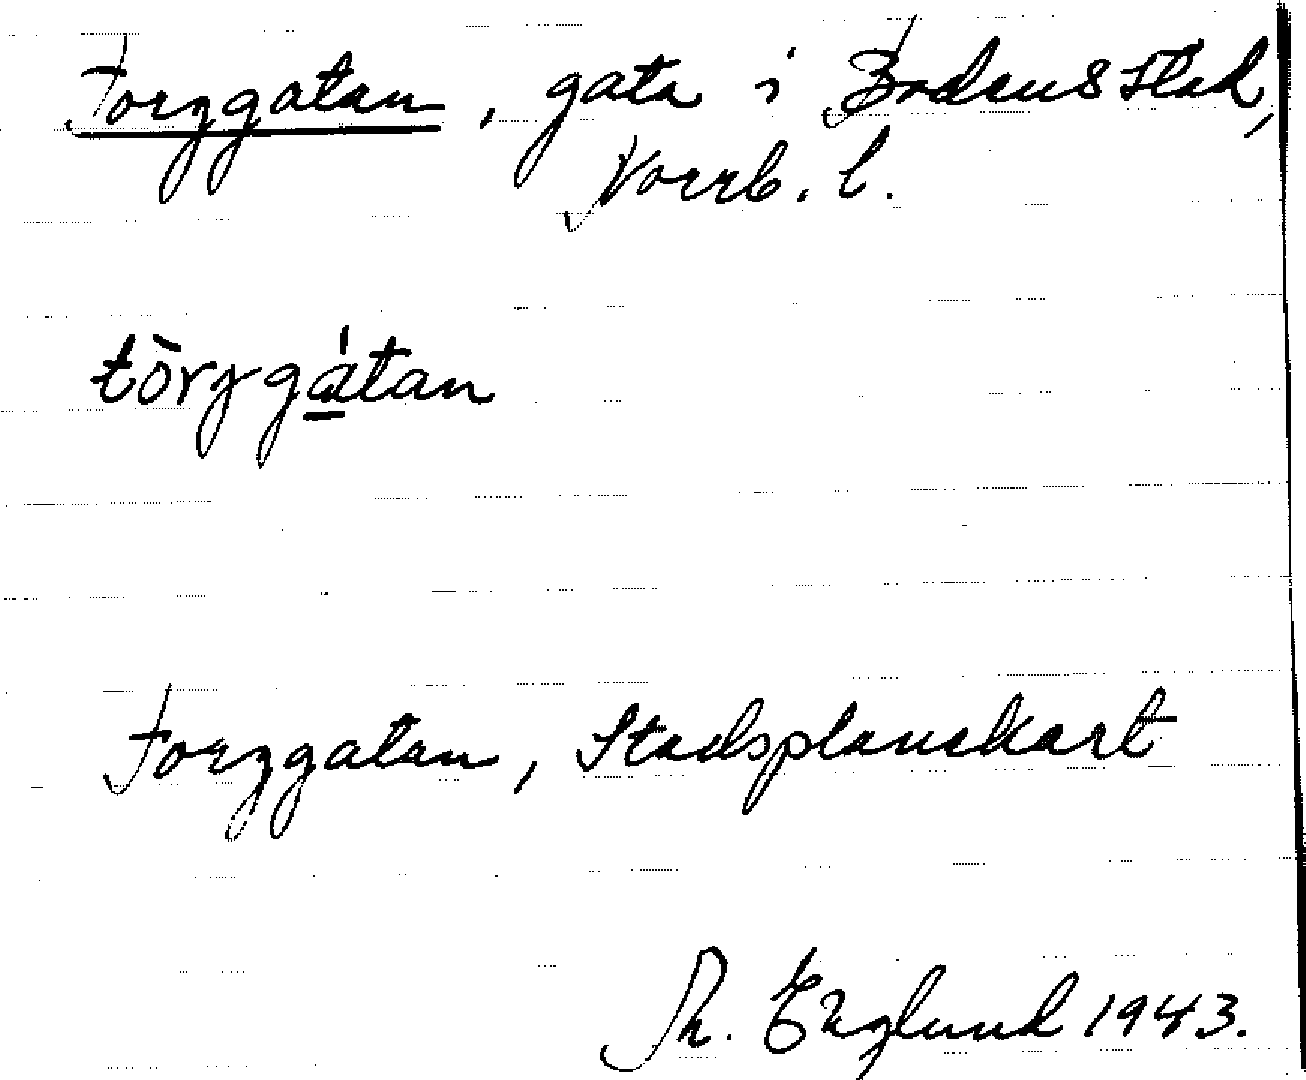 Torggatan, gata i Bodens stad,
Norrb. l.
tòrggátan
Torggatan, Stadsplanekart
Th. Englund 1943.